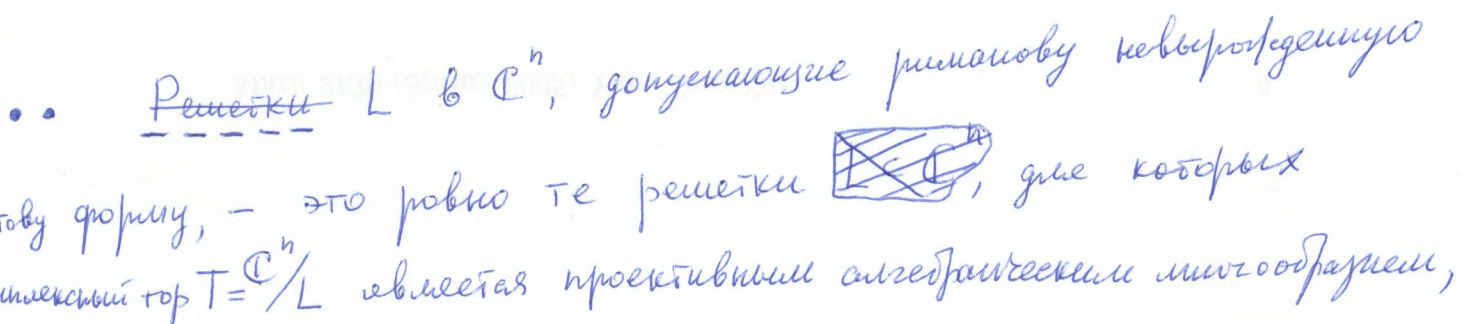 Решетки L в ℂⁿ, допускающие риманову невырожденную
тову форму, – это ровно те решетки L ⊂ ℂⁿ, для которых
мплексный тор T=ℂⁿ/L является проективным алгебраическим многообразием,